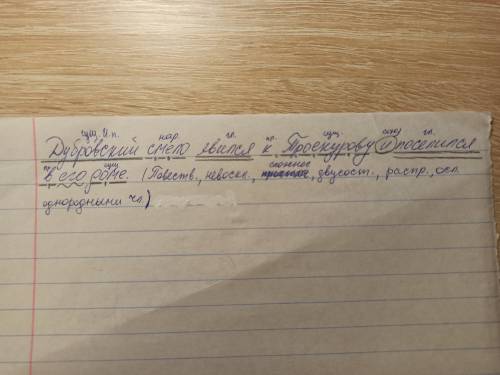 сущ. И.п. нар. гл. пр. сущ. союз гл.
Дубровский смело явился к Троекурову и поселился
пр. сущ. сложное
в его доме. (Повеств., невоскл., простое, двусост., распр., осл.
однородными чл.)